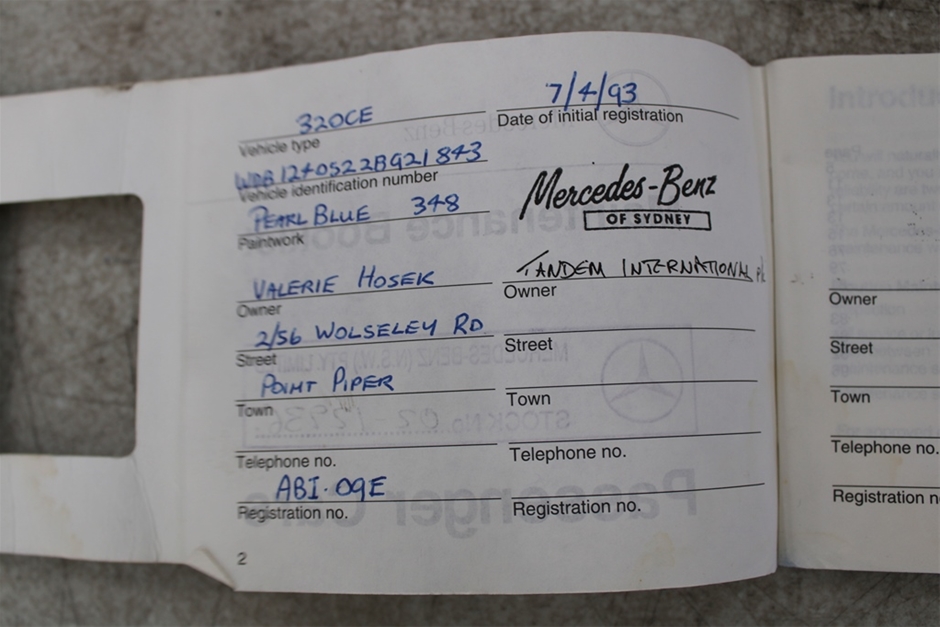 320CE
Vehicle type
WDB1240522B921843
Vehicle identification number
PEARL BLUE 348
Paintwork
VALERIE HOSEK
Owner
2/56 WOLSELEY RD
Street
POINT PIPER
Town
Telephone no.
ABI·09E
Registration no.
2
7/4/93
Date of initial registration
Mercedes-Benz
OF SYDNEY
TANDEM INTERNATIONAL P/L
Owner
Street
Town
Telephone no.
Registration no.
Introdu
Owner
Street
Town
Telephone no.
Registration n